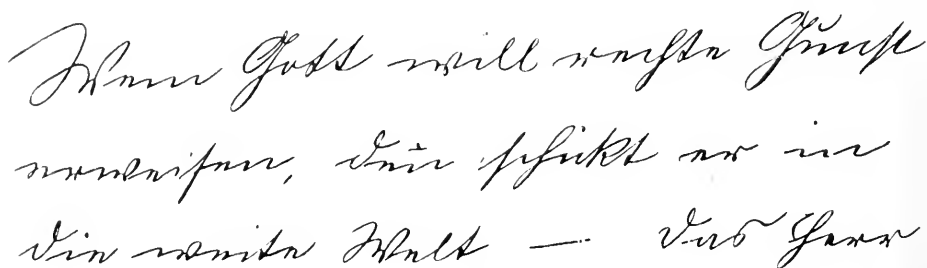 Wem Gott will rechte Gunst
erweisen, den schickt er in
die weite Welt — Das Herr